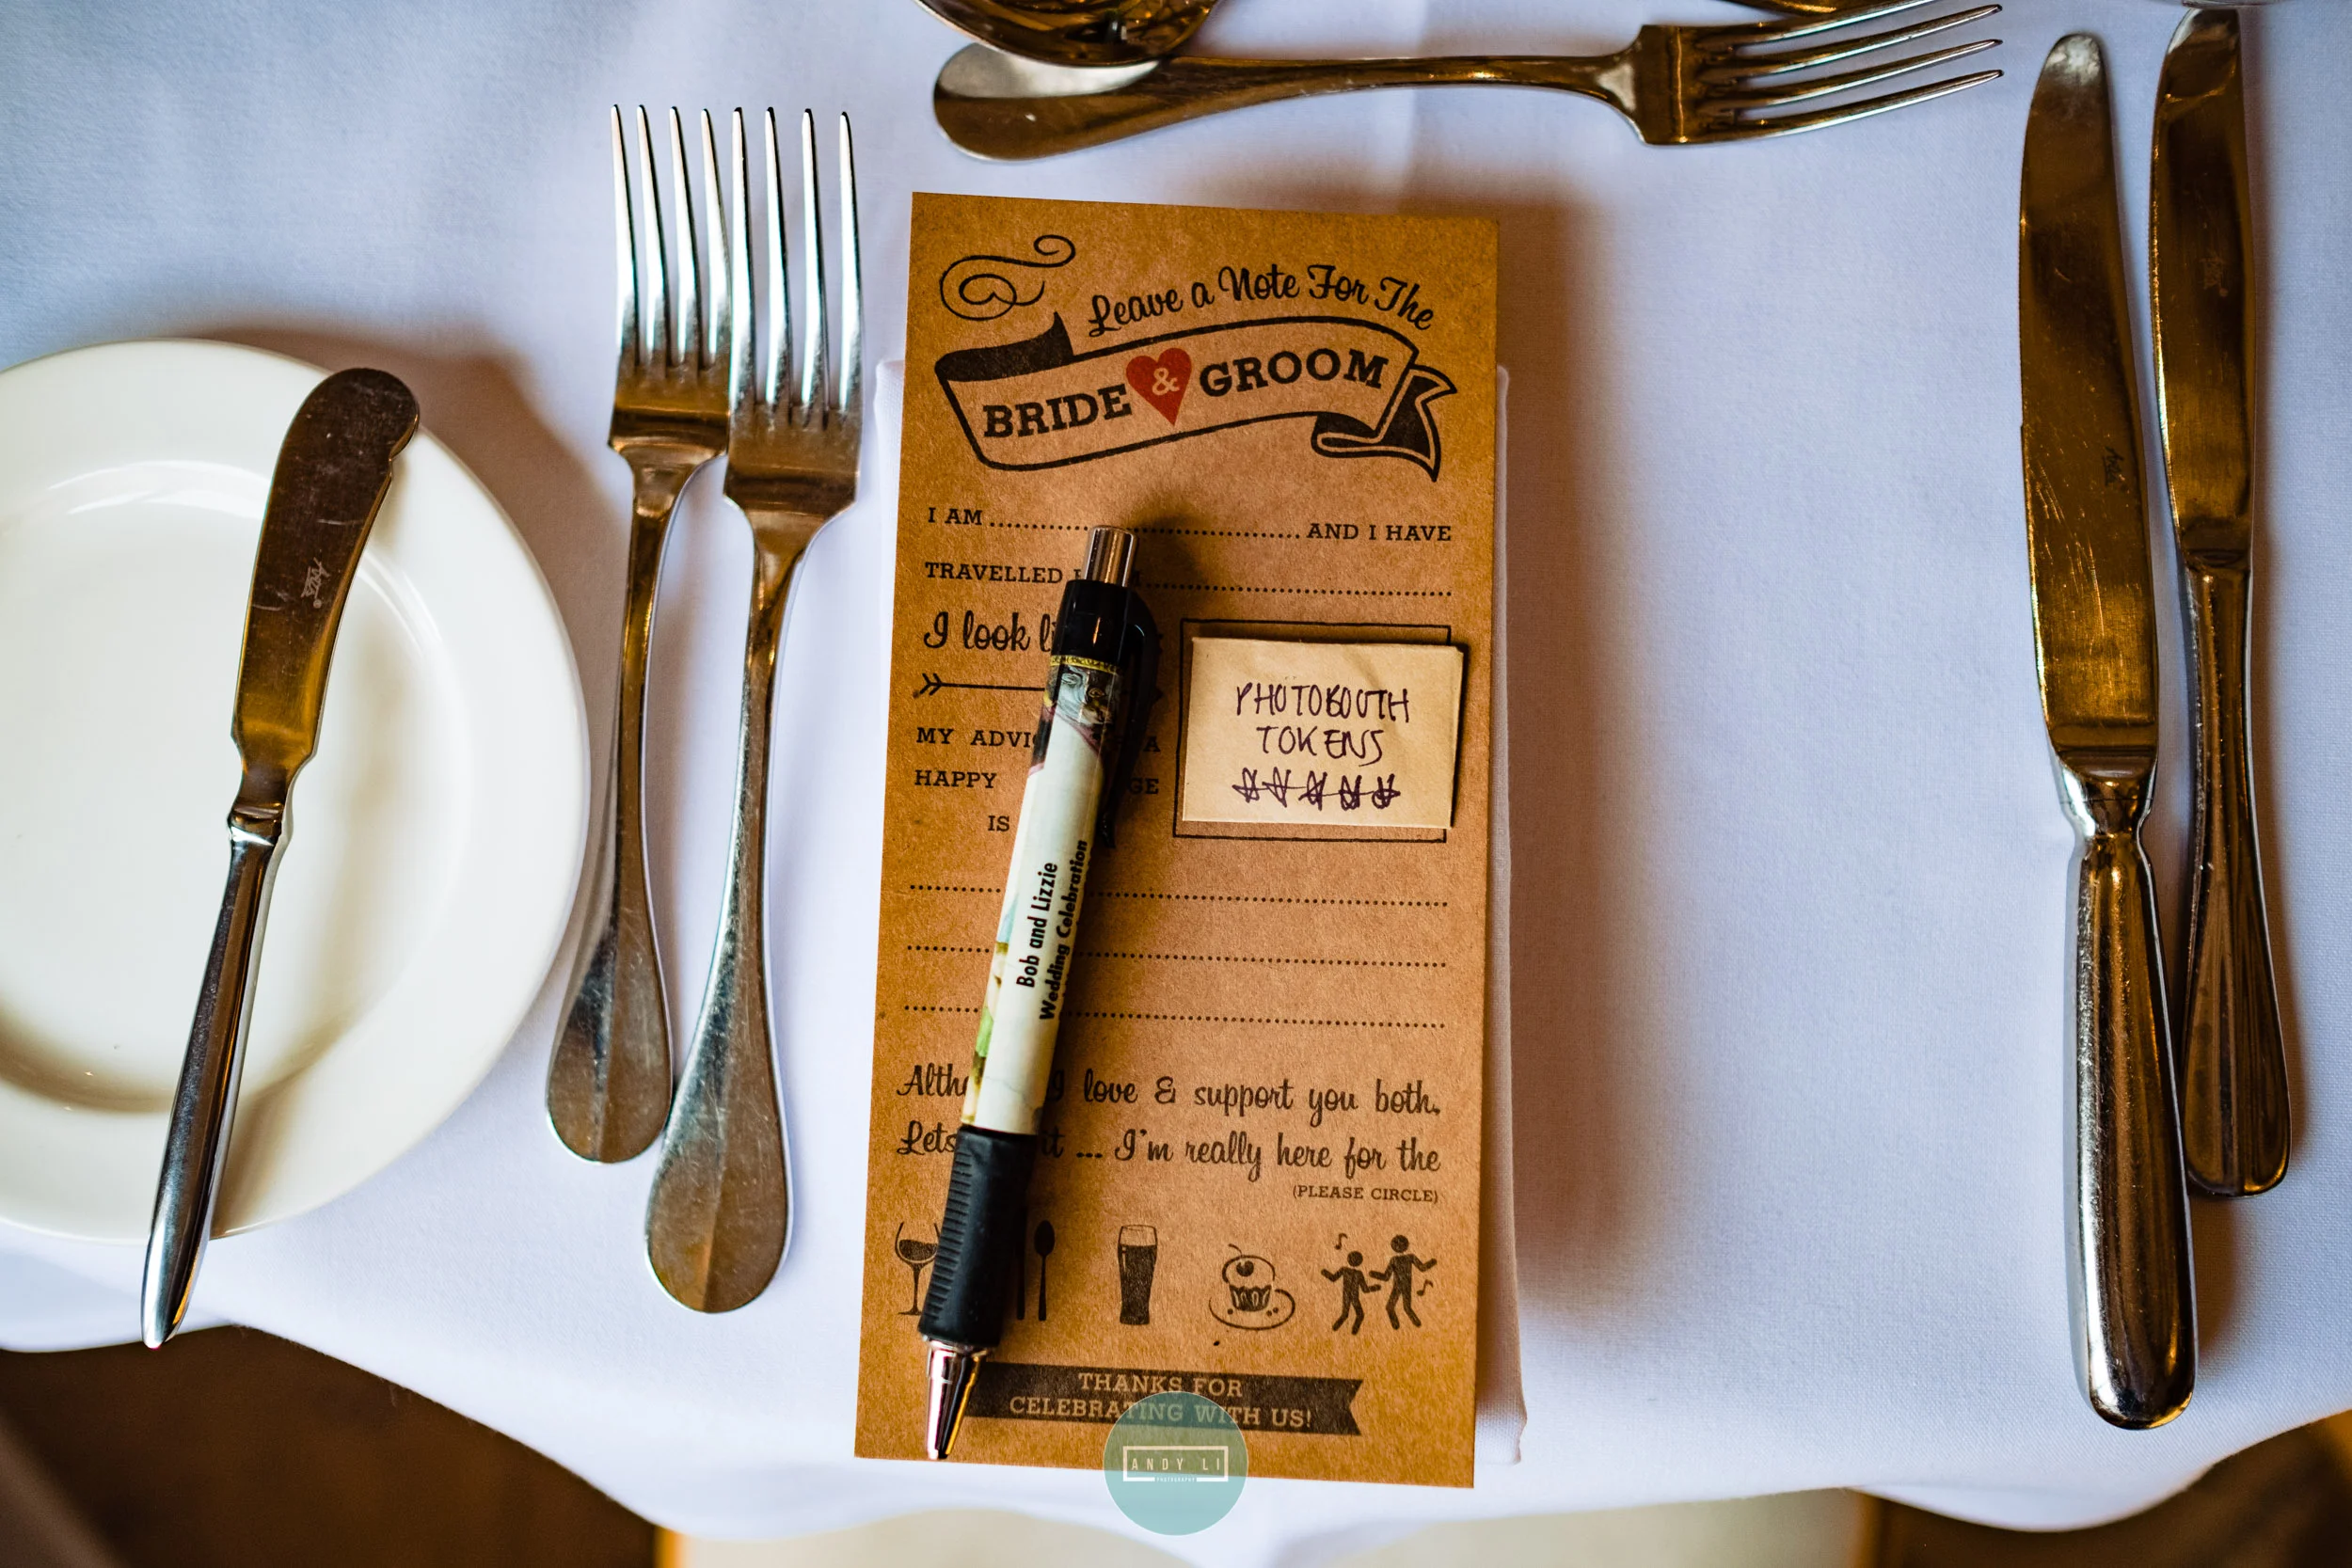 Leave a Note For The
BRIDE & GROOM
I AM ........ AND I HAVE
TRAVELLED
I look
PHOTOBOOTH
TOKENS
MY ADVI A
HAPPY GE
IS
Bob and Lizzie
Wedding Celebration
Alth I love & support you both,
Lets it ... I'm really here for the
(PLEASE CIRCLE)
THANKS FOR
CELEBRATING WITH US!
ANDY LI